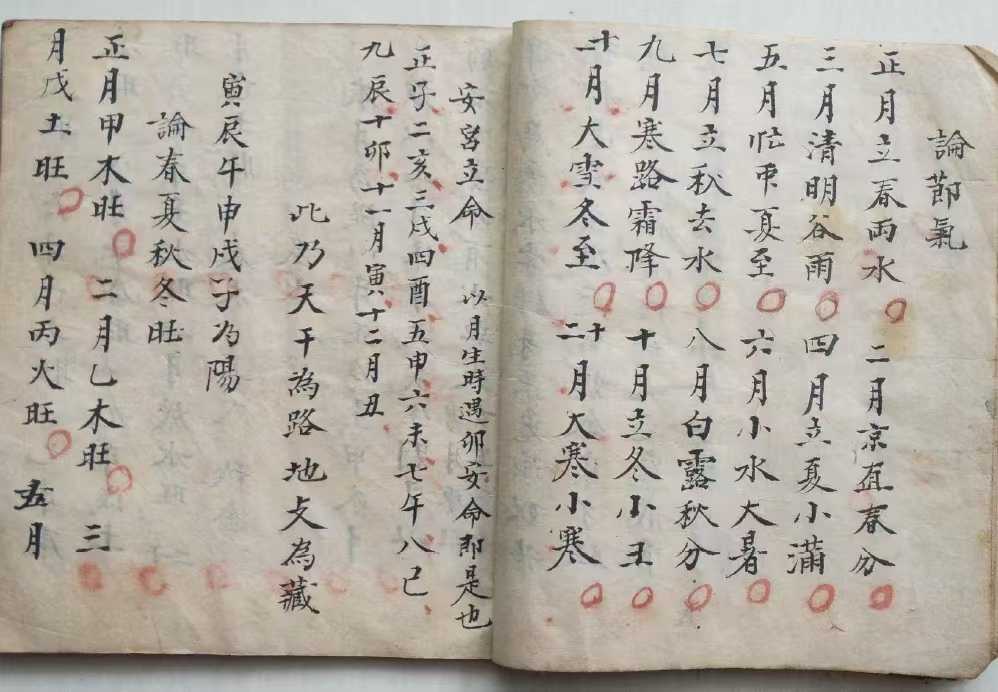 論節氣
正月立春雨水 二月京直春分
三月清明谷雨 四月立夏小滿
五月忙中夏至 六月小水大暑
七月立秋去水 八月白露秋分
九月寒路霜降 十月立冬小
十月大雪冬至 十二月大寒小寒
安宮立命 以月生時遇卯安命即是也
正子二亥三戌四酉五申六未七午八巳
九辰十卯十一月寅十二月丑
此乃天干為路地支為藏
寅辰午申戌子为陽
論春夏秋冬旺
正月甲木旺 二月乙木旺 三
月戊土旺 四月丙火旺 五月